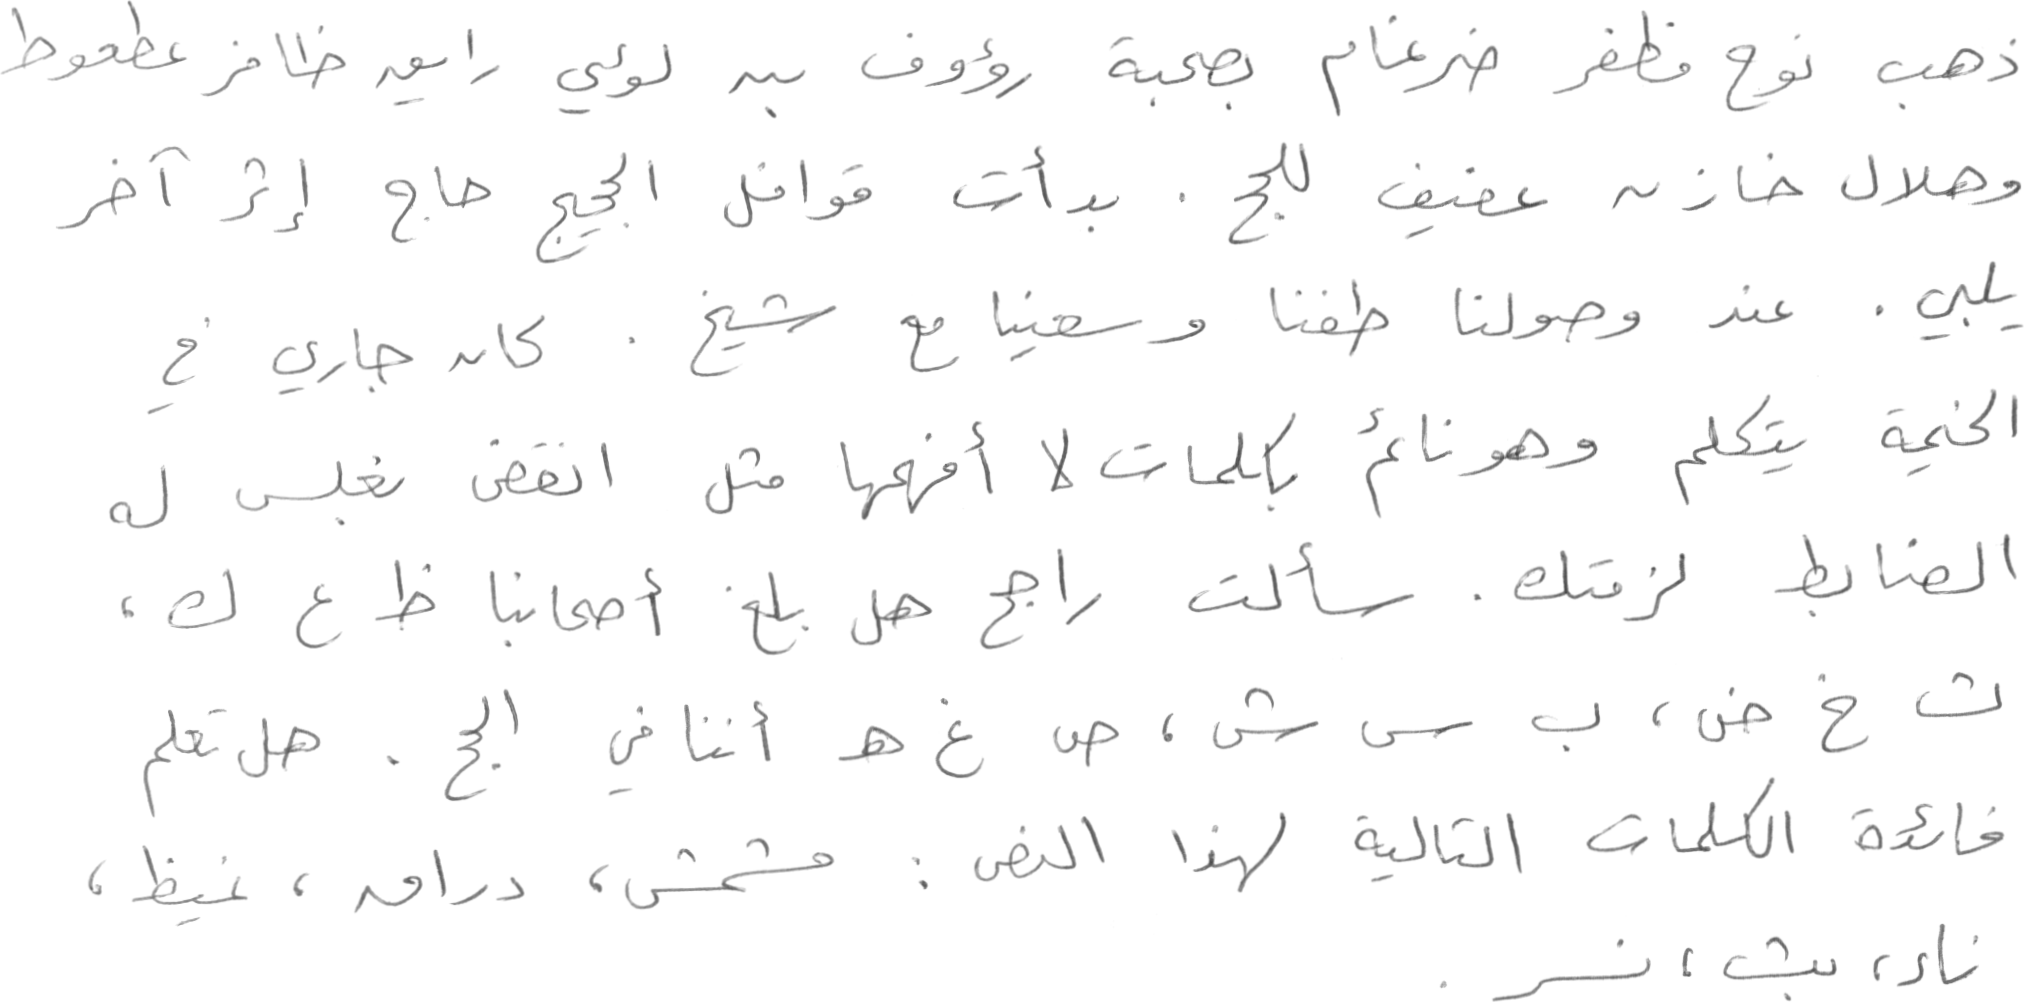 ذهب نوح مظفر ضرغام بصحبة رؤوف بن لؤي رايق ظافر عطعوط
وهلال خازن عفيف للحج . بدأت قوافل الحجيج حاج إثر آخر
يلبي . عند وصولنا طفنا وسعينا مع شيخ . كان جاري في
الخيمة يتكلم وهو نائم بكلمات لا أفهمها مثل انقض بغلس له
الضابط لزمتك . سألت راجح هل بلغ أصحابنا ظ ع ك ،
ث خ ض ، ب س ش ، ص غ ه أننا في الحج . هل تعلم
فائدة الكلمات التالية لهذا النص : مشمش ، دراق ، غيظ ،
ناء ، بث ، نسر .